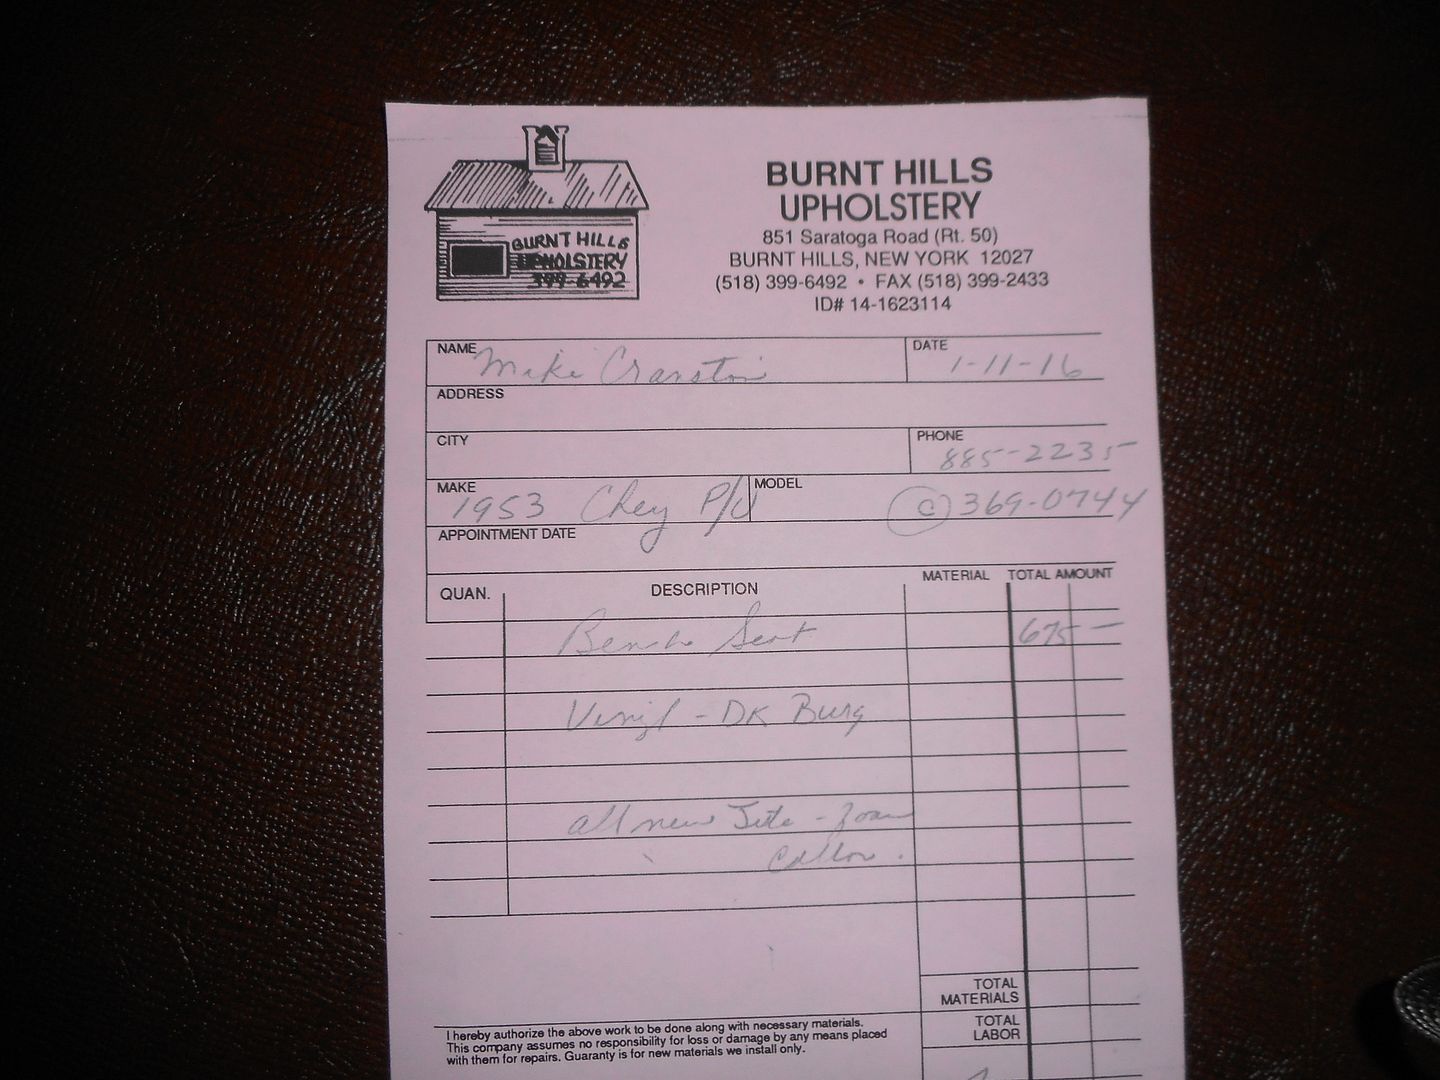 BURNT HILLS
UPHOLSTERY
399-6492
BURNT HILLS
UPHOLSTERY
851 Saratoga Road (Rt. 50)
BURNT HILLS, NEW YORK 12027
(518) 399-6492 • FAX (518) 399-2433
ID# 14-1623114
NAME Mike Cranston
DATE 1-11-16
ADDRESS
CITY
PHONE 885-2235
MAKE 1953 Chev P/U
MODEL (C) 369-0744
APPOINTMENT DATE
QUAN. DESCRIPTION MATERIAL TOTAL AMOUNT
Bench Seat 675 —
Vinyl - DK Burg
all new Jute - Foam
Cotton.
TOTAL MATERIALS
TOTAL LABOR
I hereby authorize the above work to be done along with necessary materials.
This company assumes no responsibility for loss or damage by any means placed
with them for repairs. Guaranty is for new materials we install only.